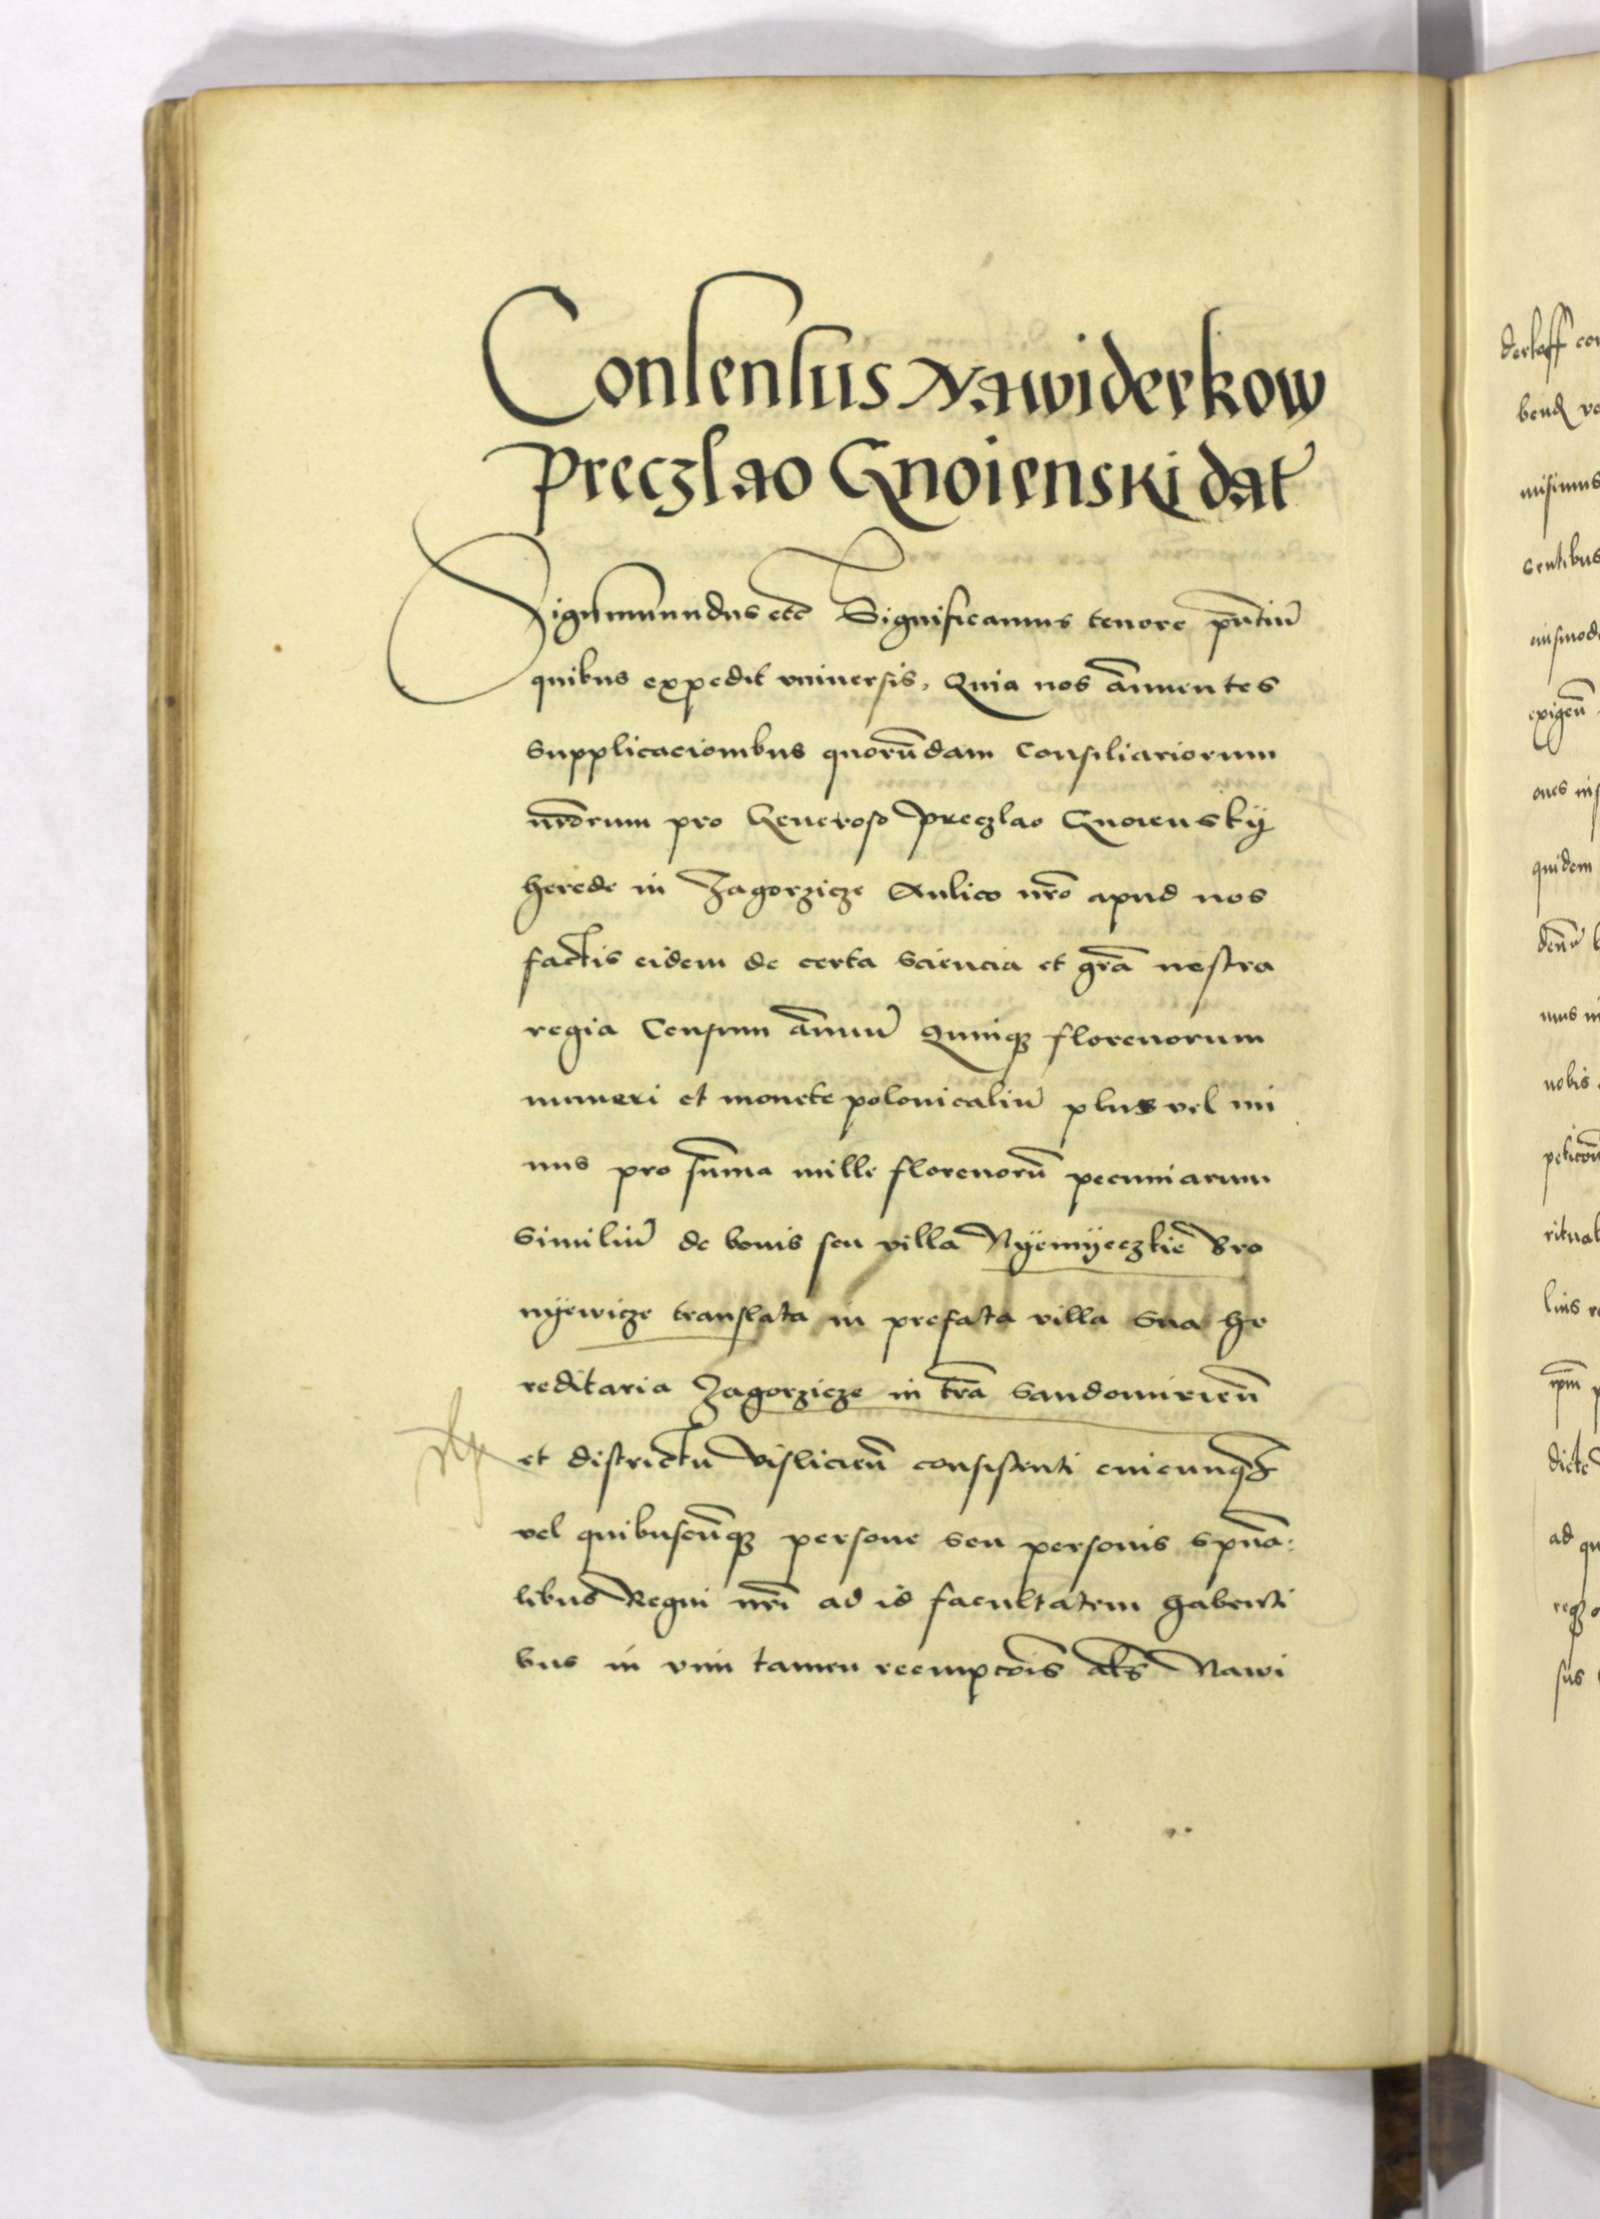 Consensus Nawiderkow
Preczlao Gnoienski dat
Sigismundus etc Significamus tenore pñtiũ
quibus expedit vniuersis, Quia nos ãnuentes
Supplicacionibus quorũdam Consiliariorum
nr̃orum pro Generoso Preczlao Gnoienskÿ
herede in Zagorzicze Aulico nr̃o apud nos
factis eidem de certa sciencia et gr̃a nostra
regia Censum ãnuũ Quinqꝫ florenorum
numeri et monete polonicaliũ plus vel mi
nus pro sũma mille florenorũ pecuniarum
Similiũ de bonis seu villa Nÿemÿeczkie Bro
nÿewicze translata in prefata villa sua he
reditaria Zagorzicze in tr̃a Sandomirieñ
et districtu Vislicieñ consistenti cuicunqꝫ
vel quibuscũqꝫ persone seu personis sp̃ua:
libus Regni nr̃i ad id facultatem habenti
bus in vim tamen reempcõis al̃s Nawi
derkaff
bend
misimus
sentibus
exigeñ
ones
quidem
mus
nobis
peticoñ
ritual
ip̃m
dicte
ad
sus